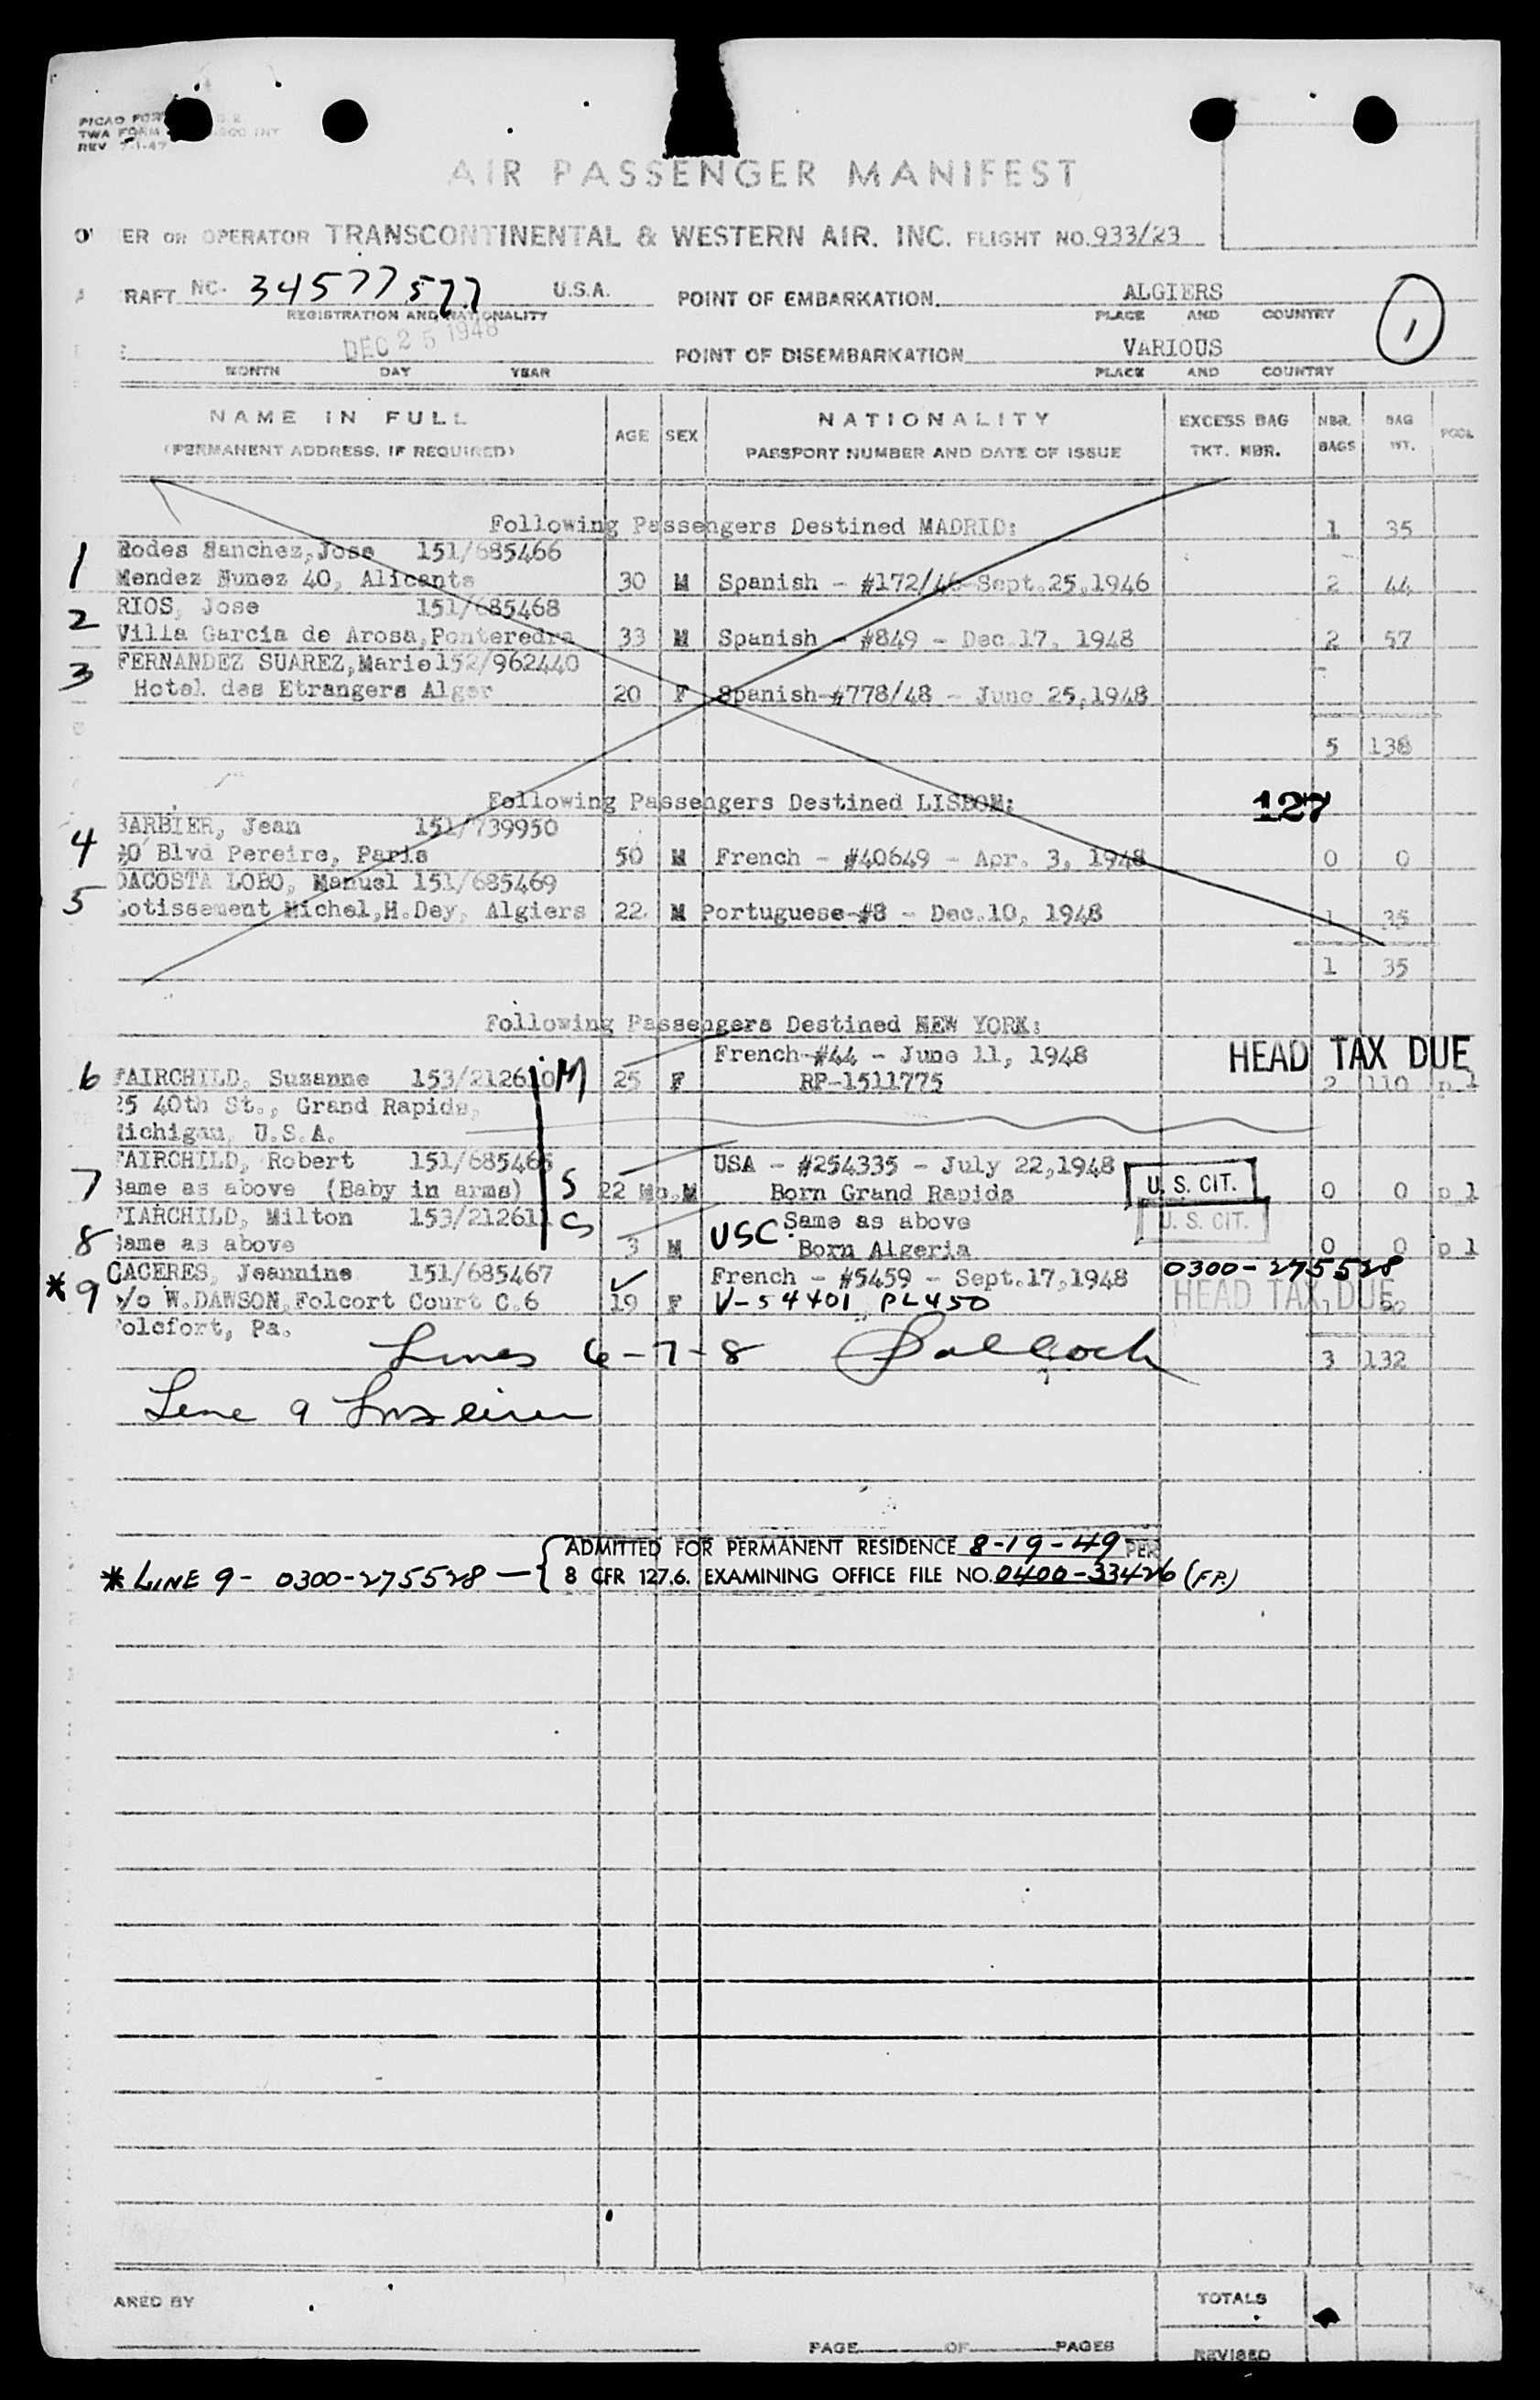 PICAO FOR
TWA FORM
REV 7-1-47
AIR PASSENGER MANIFEST
OR OPERATOR TRANSCONTINENTAL & WESTERN AIR. INC. FLIGHT NO. 933/23
RAFT NC- 34577 577 U.S.A. POINT OF EMBARKATION ALGIERS
REGISTRATION AND NATIONALITY PLACE AND COUNTRY
1
DEC 25 1948 POINT OF DISEMBARKATION VARIOUS
MONTH DAY YEAR PLACE AND COUNTRY
NAME IN FULL AGE SEX NATIONALITY EXCESS BAG NBR. BAG POOL
(PERMANENT ADDRESS, IF REQUIRED) PASSPORT NUMBER AND DATE OF ISSUE TKT. NBR. BAGS WT.
Following Passengers Destined MADRID: 1 35
1 Rodes Sanchez,Jose 151/685466
Mendez Nunez 40, Alicante 30 M Spanish - #172/46-Sept.25,1946 2 44
2 RIOS, Jose 151/685468
Villa Garcia de Arosa,Ponteredra 33 M Spanish - #849 - Dec.17, 1948 2 57
3 FERNANDEZ SUAREZ,Marie152/962440
Hotel des Etrangers Alger 20 F Spanish-#778/48 - June 25,1948
5 136
Following Passengers Destined LISBON: 127
4 BARBIER, Jean 151/739950
Blvd Pereire, Paris 50 M French - #40649 - Apr. 3, 1948 0 0
5 DACOSTA LOBO, Manuel 151/685469
Lotissement Michel,H.Dey, Algiers 22 M Portuguese-#8 - Dec.10, 1948 1 35
1 35
Following Passengers Destined NEW YORK:
French-#44 - June 11, 1948 HEAD TAX DUE
6 FAIRCHILD, Suzanne 153/212610 M 25 F RP-1511775 2 110 p l
25 40th St., Grand Rapids,
Michigan, U.S.A.
FAIRCHILD, Robert 151/685465 USA - #254335 - July 22,1948
7 Same as above (Baby in arms) S 22 Mo. M Born Grand Rapids U. S. CIT. 0 0 p l
FIARCHILD, Milton 153/212611 S USC Same as above U. S. CIT.
8 Same as above 3 M Born Algeria 0 0 p l
CACERES, Jeannine 151/685467 French - #5459 - Sept.17,1948 0300-275528
*9 c/o W.DAWSON,Folcort Court C.6 19 F V-54401 PL450 HEAD TAX DUE 1 22
Folcfort, Pa.
Lines 6-7-8 3 132
Line 9
*LINE 9- 0300-275528- { ADMITTED FOR PERMANENT RESIDENCE 8-19-49 PER
8 CFR 127.6. EXAMINING OFFICE FILE NO. 0400-33426 (FP.)
ARED BY TOTALS
PAGE OF PAGES REVISED